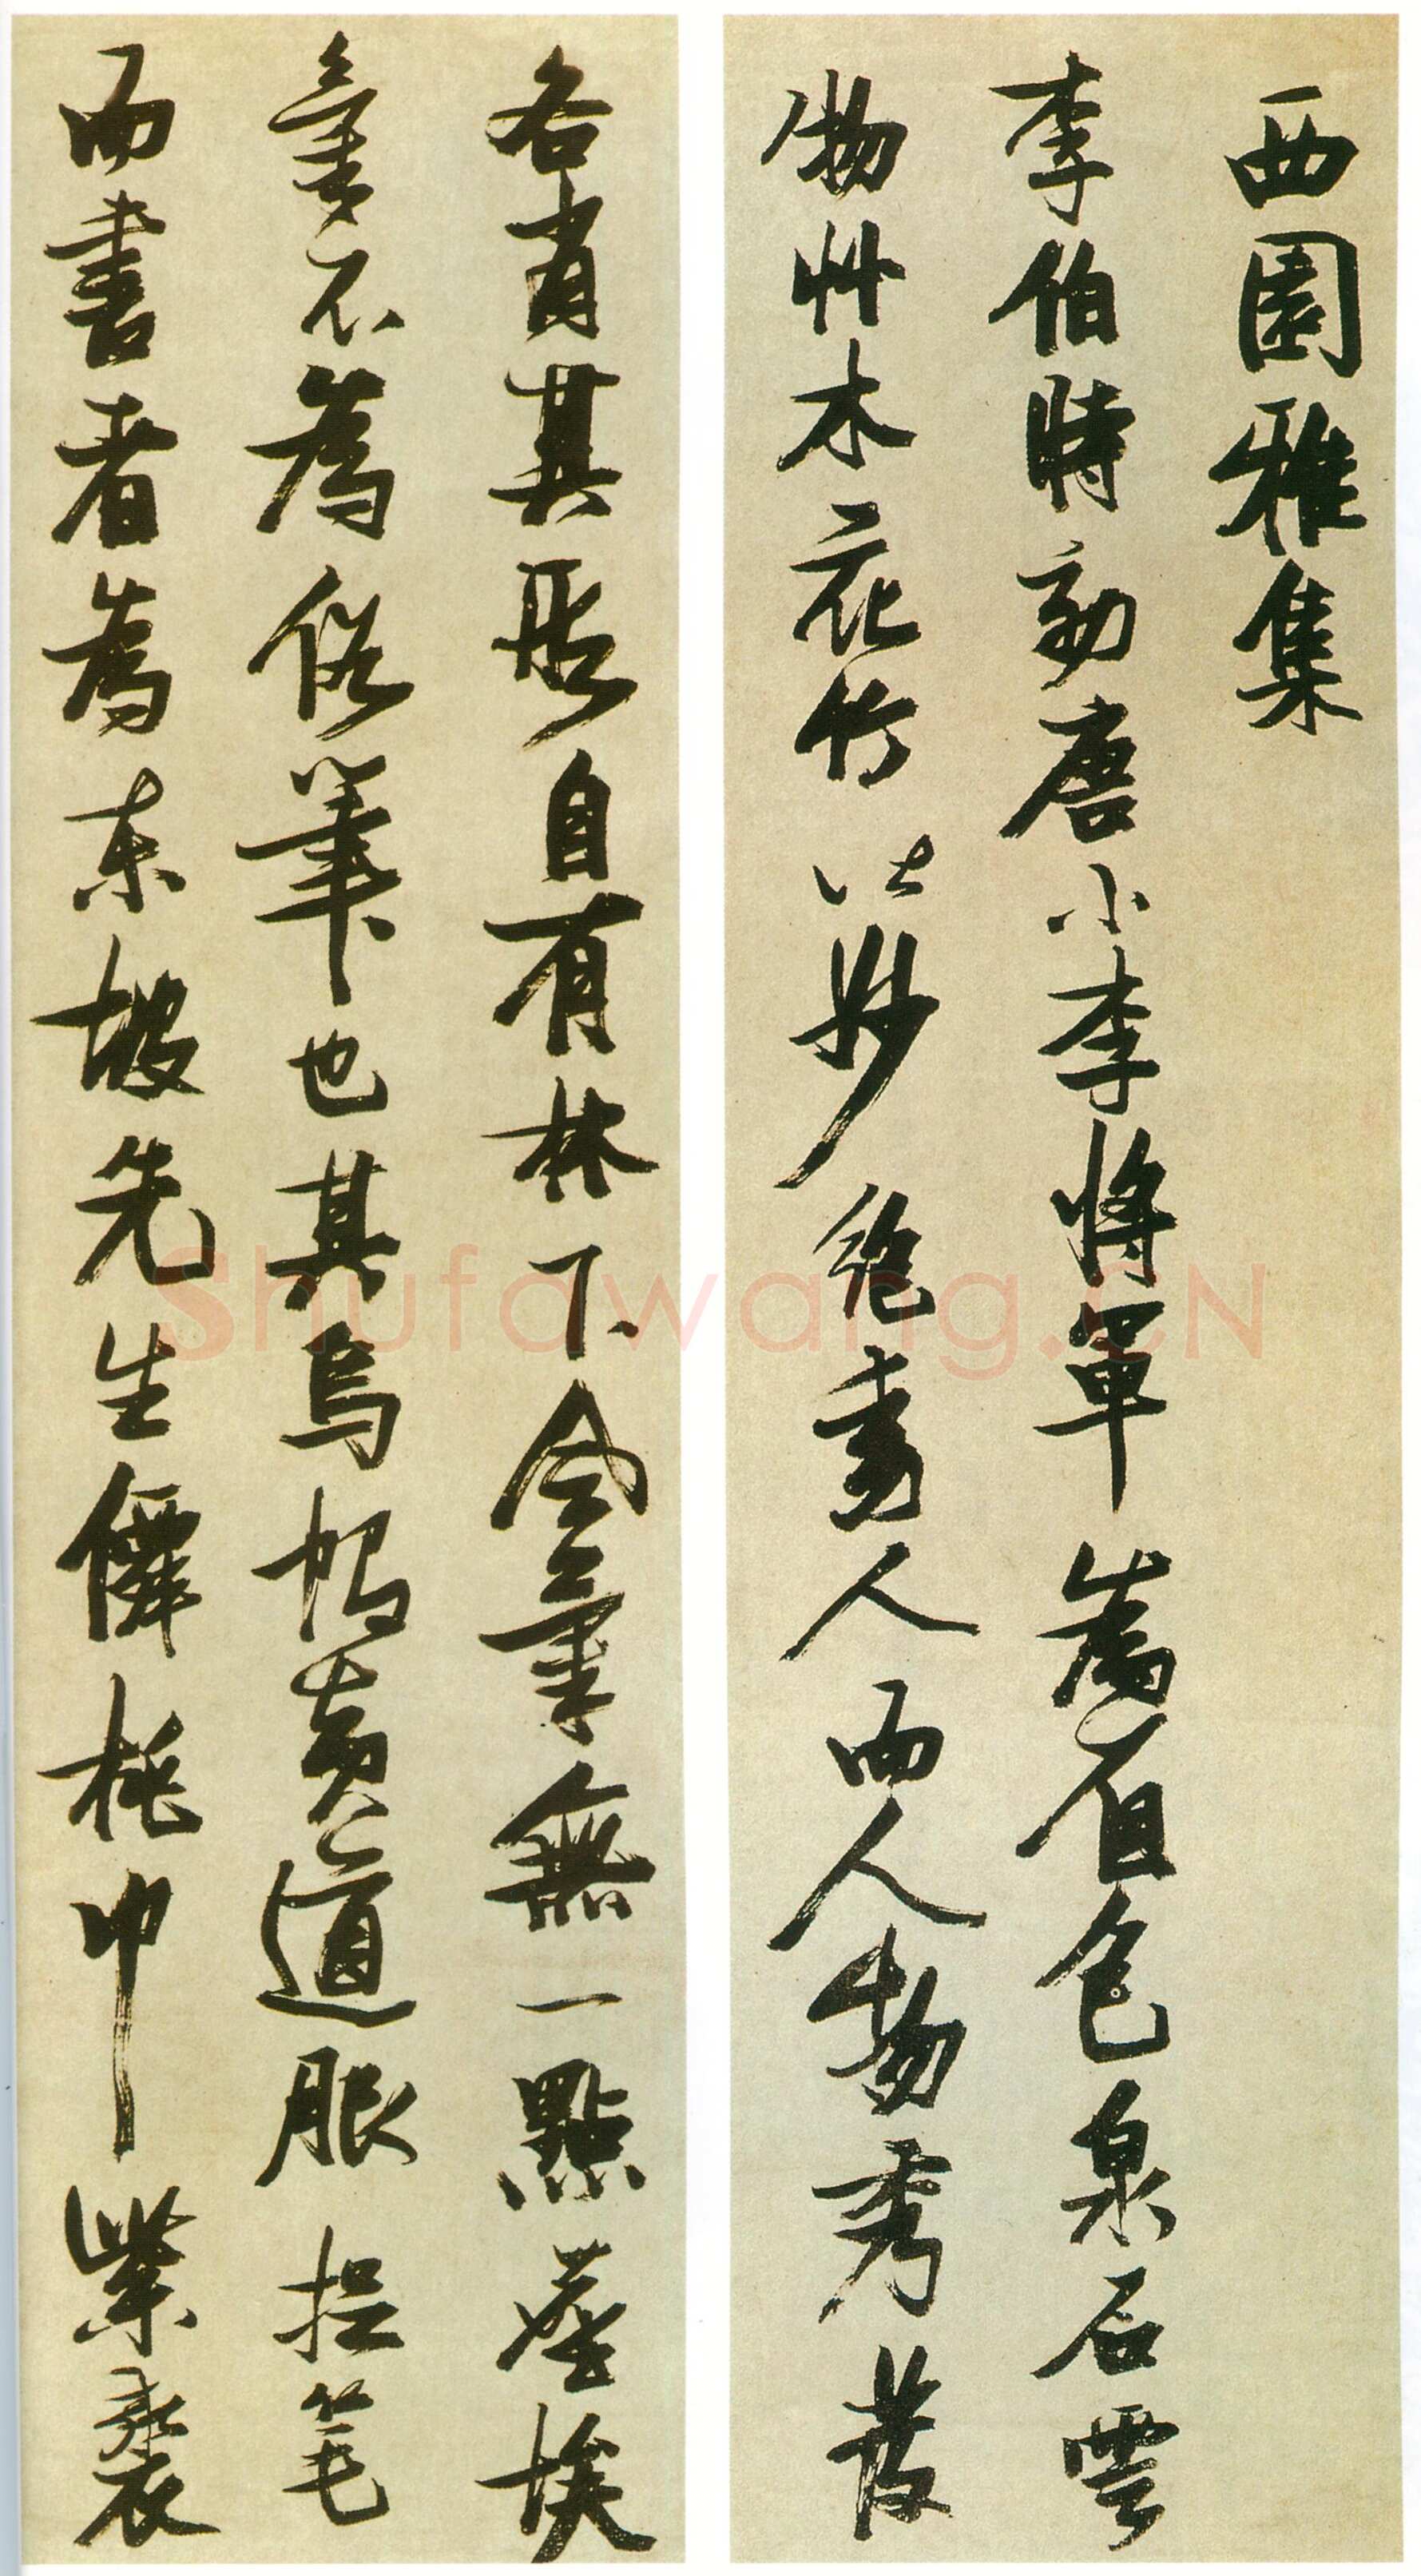 西園雅集
李伯時效唐小李將軍為着色泉石雲
物艸木花竹皆妙絕動人而人物秀發
各肖其形自有林下無一點塵埃
不為俗筆也其烏帽黃道服捉笔
而書者為東坡先生僊桃巾紫裘
Shufawang.CN